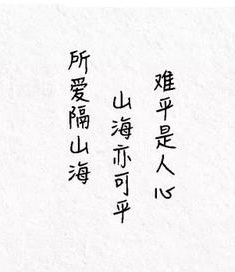 所爱隔山海
山海亦可平
难平是人心